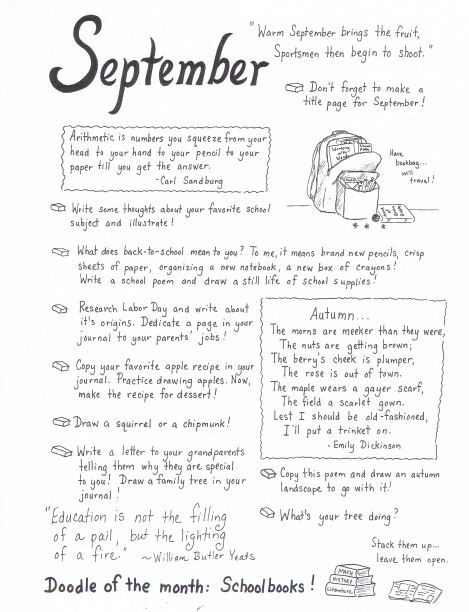 September
"Warm September brings the fruit,
Sportsmen then begin to shoot."
Don't forget to make a
title page for September!
Arithmetic is numbers you squeeze from your
head to your hand to your pencil to your
paper till you get the answer.
-Carl Sandburg
Have
bookbag...
will
travel!
Write some thoughts about your favorite school
subject and illustrate!
What does back-to-school mean to you? To me, it means brand new pencils, crisp
sheets of paper, organizing a new notebook, a new box of crayons!
Write a school poem and draw a still life of school supplies!
Research Labor Day and write about
it's origins. Dedicate a page in your
journal to your parents' jobs!
Copy your favorite apple recipe in your
journal. Practice drawing apples. Now,
make the recipe for dessert!
Draw a squirrel or a chipmunk!
Write a letter to your grandparents
telling them why they are special
to you! Draw a family tree in your
journal!
Autumn...
The morns are meeker than they were,
The nuts are getting brown;
The berry's cheek is plumper,
The rose is out of town.
The maple wears a gayer scarf,
The field a scarlet gown.
Lest I should be old-fashioned,
I'll put a trinket on.
- Emily Dickinson
Copy this poem and draw an autumn
landscape to go with it!
What's your tree doing?
"Education is not the filling
of a pail, but the lighting
of a fire."
~William Butler Yeats
Stack them up...
leave them open.
MATH
HISTORY
Literature
Doodle of the month: Schoolbooks!